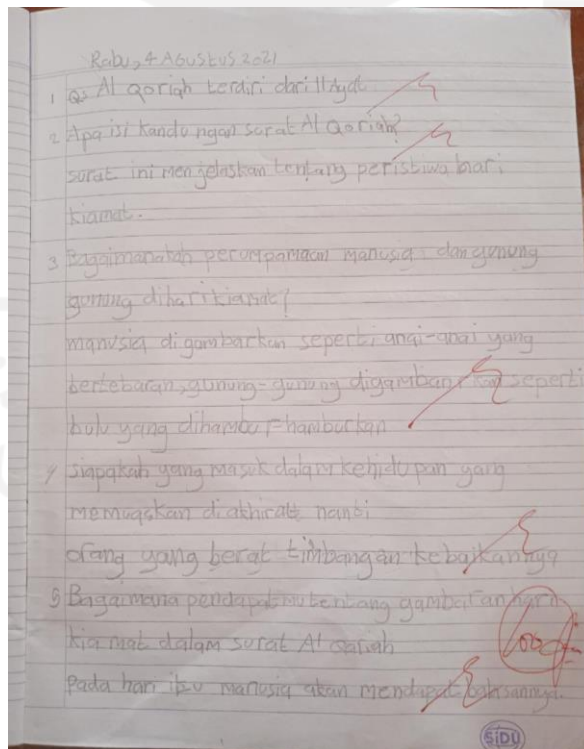 Rabu, 4 AGUStUS 2021
1 Qs Al Qoriah terdiri dari 11 Ayat
2 Apa isi kandungan surat Al Qoriah?
surat ini menjelaskan tentang peristiwa hari
kiamat.
3 Bagaimanakah perumpamaan manusia dan gunung
gunung dihari kiamat?
manusia digambarkan seperti anai-anai yang
bertebaran, gunung-gunung digambarkan seperti
bulu yang dihambur-hamburkan
4 siapakah yang masuk dalam kehidupan yang
memuaskan di akhirat nanti
orang yang berat timbangan kebaikannya
5 Bagaimana pendapatmu tentang gambaran hari
kiamat dalam surat Al qariah
100
Pada hari itu manusia akan mendapat balasannya.
SiDU